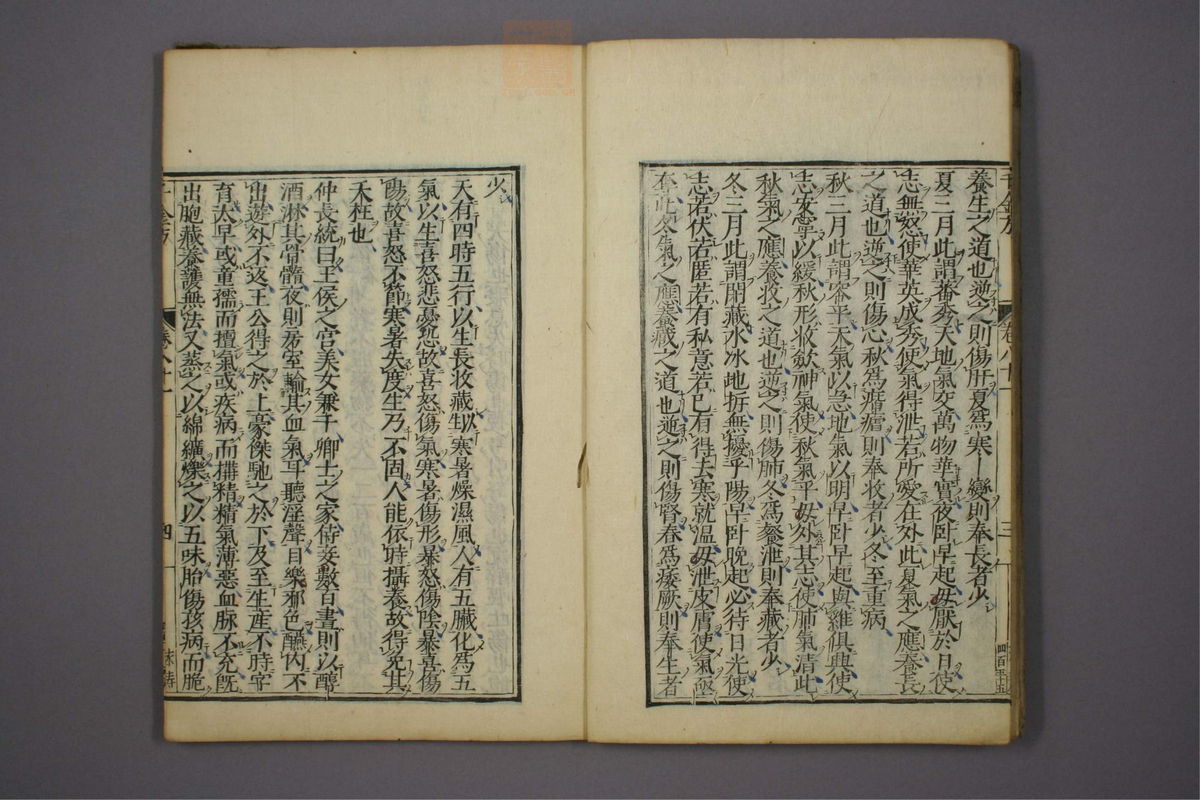 養生之道也逆之則傷肝夏爲寒變則奉長者少
夏三月此謂蕃秀天地氣交萬物華實夜卧早起毋厭於日使
志無怒使華英成秀使氣得泄若所愛在外此夏氣之應養長
之道也逆之則傷心秋爲痎瘧則奉收者少冬至重病
秋三月此謂容平天氣以急地氣以明早卧早起與雞俱興使
志安寧以緩秋形收歛神氣使秋氣平毋外其志使肺氣清此
秋氣之應養收之道也逆之則傷肺冬爲飱泄則奉藏者少
冬三月此謂閉藏水冰地拆無擾乎陽早卧晚起必待日光使
志若伏若匿若有私意若已有得去寒就温毋泄皮膚使氣亟
奪此冬氣之應養藏之道也逆之則傷腎春爲痿厥則奉生者
千金方
卷八十一
三
少
天有四時五行以生長收藏以寒暑燥濕風人有五臟化爲五
氣以生喜怒悲憂恐故喜怒傷氣寒暑傷形暴怒傷陰暴喜傷
陽故喜怒不節寒暑失度生乃不固人能依時攝養故得免其
夭枉也
仲長統曰王侯之宫美女兼千卿士之家侍妾數百晝則以醇
酒淋其骨髓夜則房室輸其血氣耳聽淫聲目樂邪色醼内不
出遊外不返王公得之於上豪傑馳之於下及至生産不時字
育太早或童孺而擅氣或疾病而搆精精氣薄惡血脉不充旣
出胞藏養護無法又蒸之以綿纊爍之以五味胎傷孩病而脆
千金方
卷八十一
四